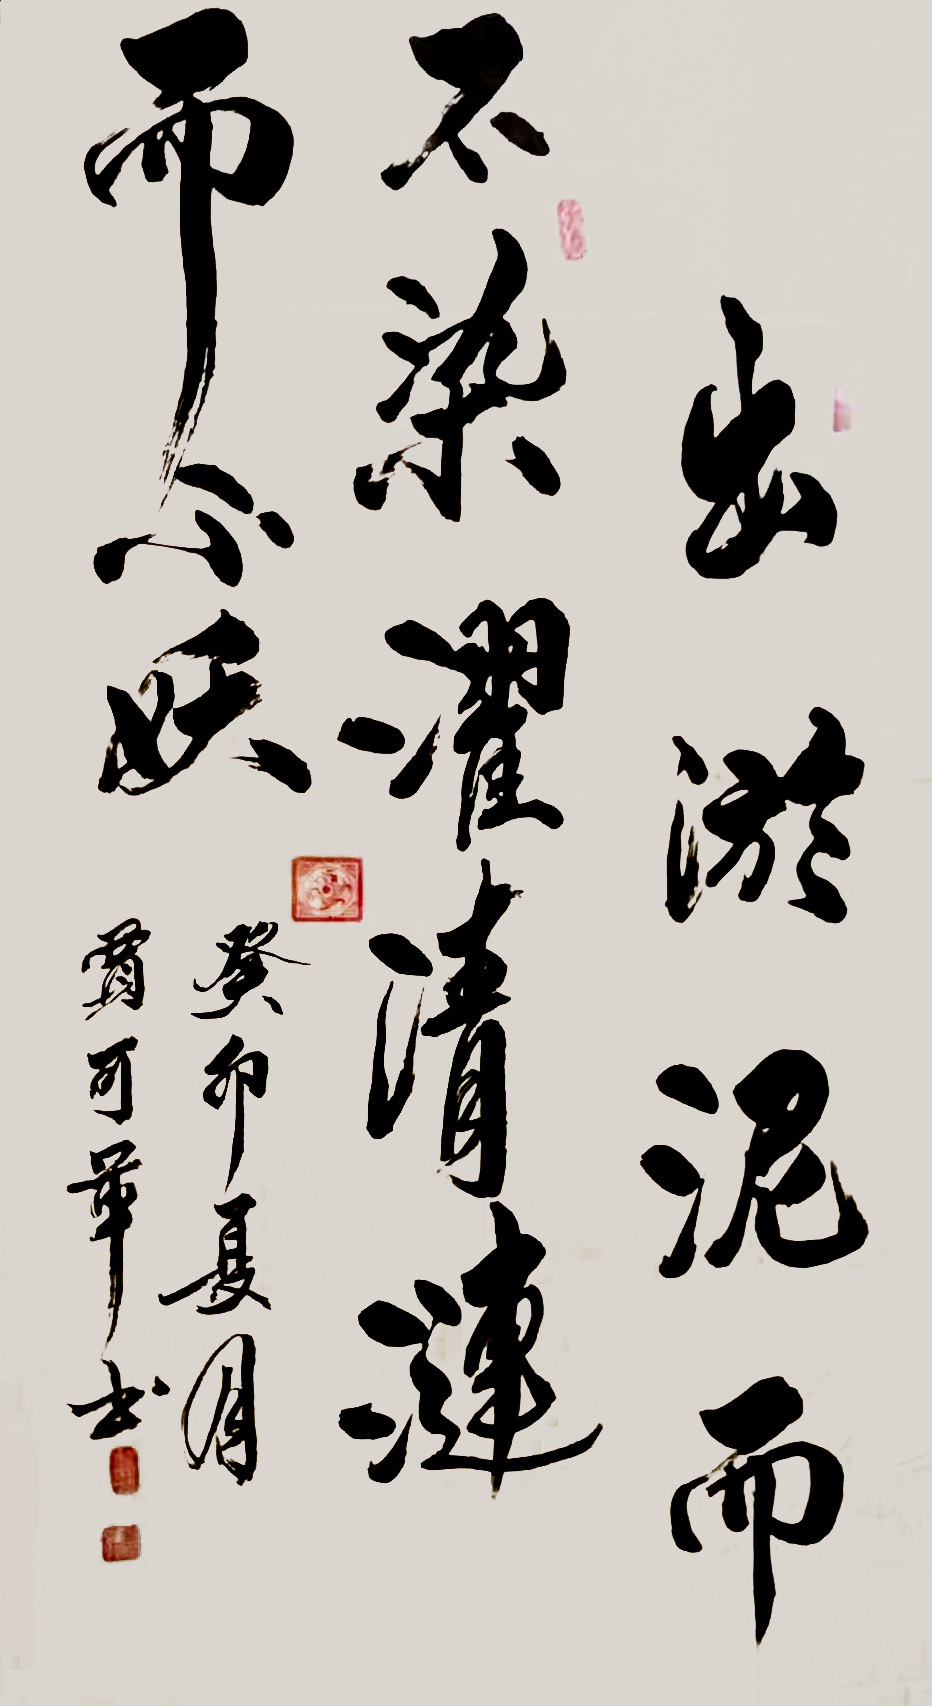 出淤泥而
不染濯清漣
而不妖
癸卯夏月
賈可華书